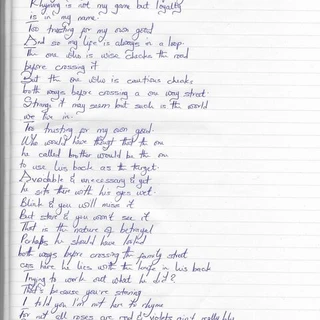 Rhyming is not my game but loyalty
is in my name.
Too trusting for my own good
And so my life is always in a loop.
The one who is wise checks the road
before crossing it
But the one who is cautious checks
both ways before crossing a one way street.
Strange it may seem but such is the world
we live in.
Too trusting for my own good.
Who would have thought that the one
he called brother would be the one
to use his back as the target.
Avoidable & unecessary & yet
he sits there with his eyes wet.
Blink & you will miss it
But stare & you won't see it
That is the nature of betrayal
Perhaps he should have looked
both ways before crossing the family street
cos here he lies with the knife in his back
Trying to work out what he did?
That's because you're staring
I told you I'm not here to rhyme
for not all roses are red & violets ain't really blue